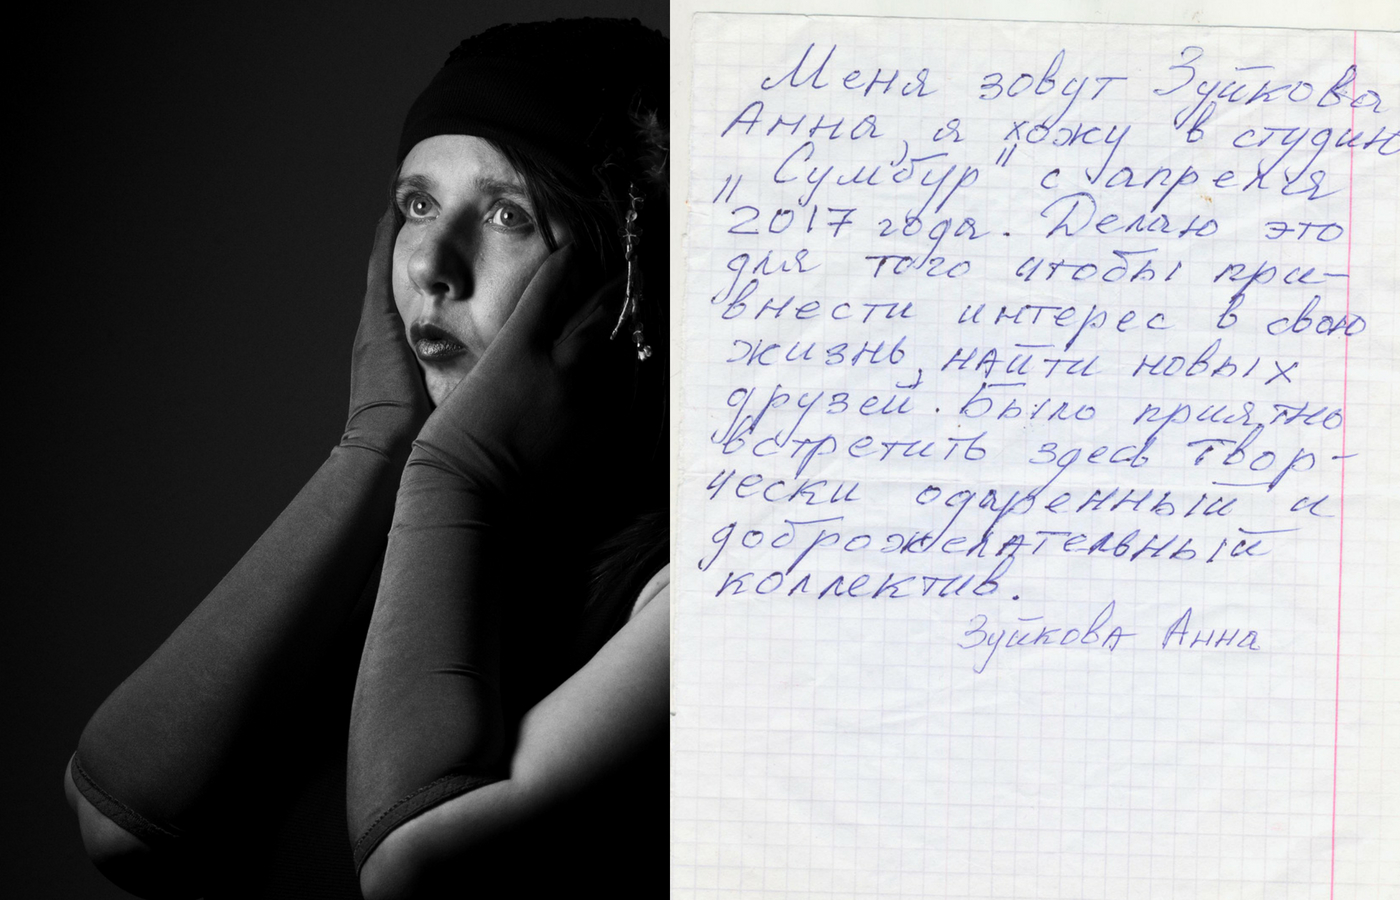 Меня зовут Зуйкова
Анна, я хожу в студию
"Сумбур" с апреля
2017 года. Делаю это
для того чтобы при-
внести интерес в свою
жизнь, найти новых
друзей. Было приятно
встретить здесь твор-
чески одаренный и
доброжелательный
коллектив.
Зуйкова Анна